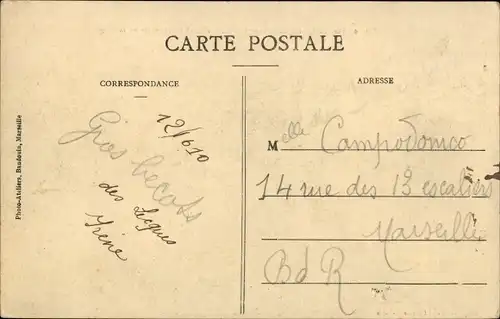 CARTE POSTALE
CORRESPONDANCE
12/6 10
Gros bécots
des Lecques
Irène
ADRESSE
Melle Campodonico
14 rue des 13 escaliers
Marseille
BdR
Photo-Ateliers, Baudouin, Marseille